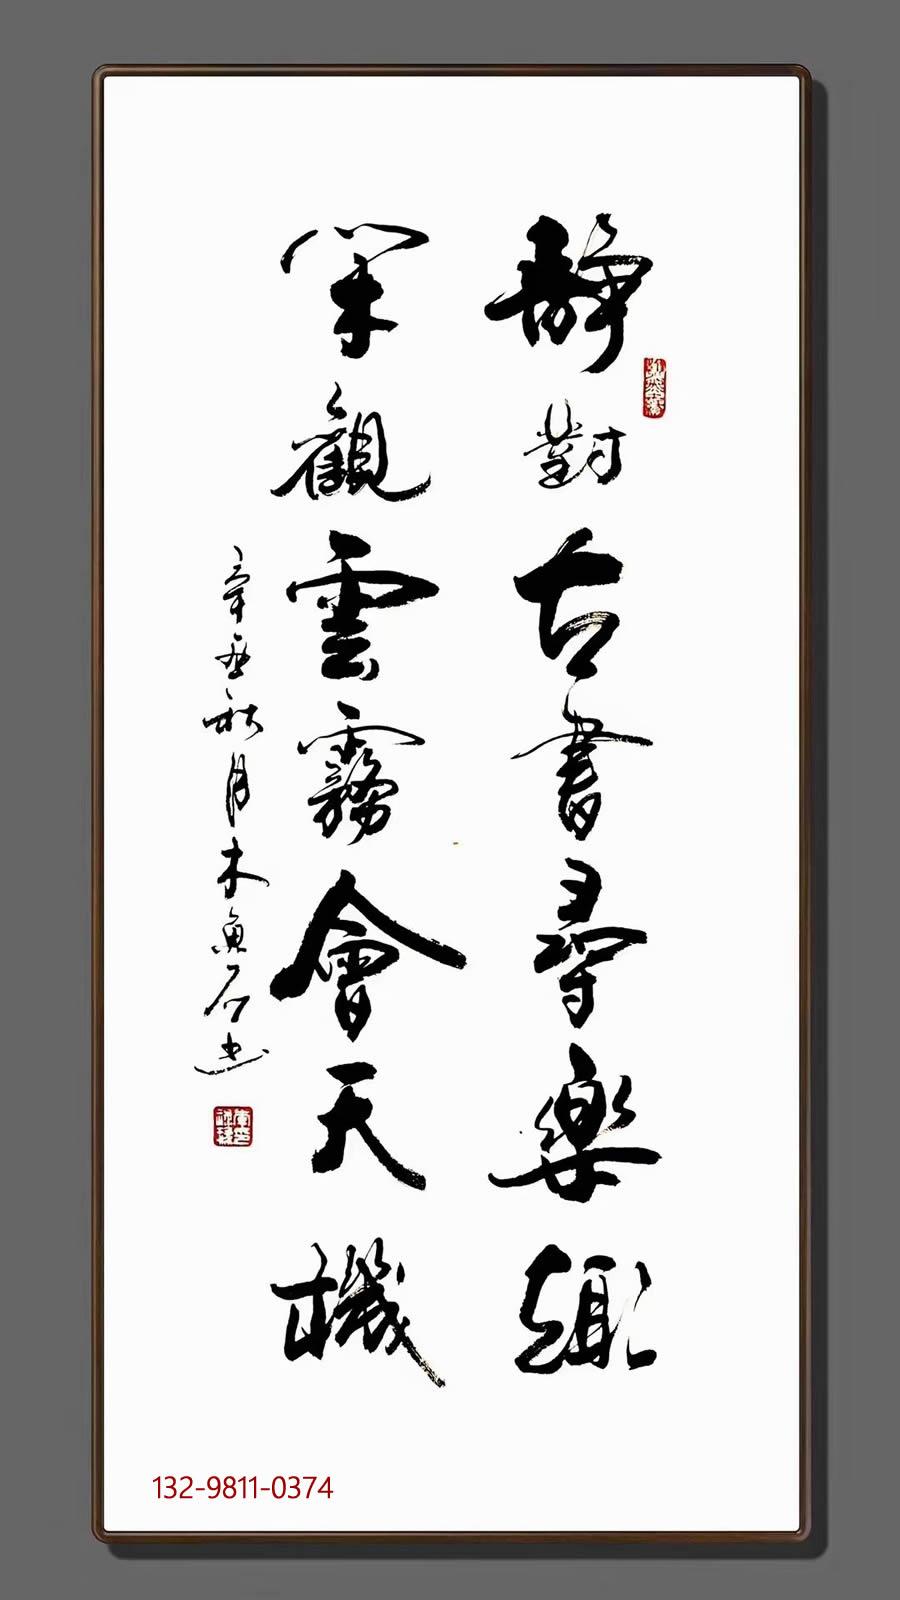 靜對古書尋樂趣
閑觀雲霧會天機
秋月木魚石書
132-9811-0374